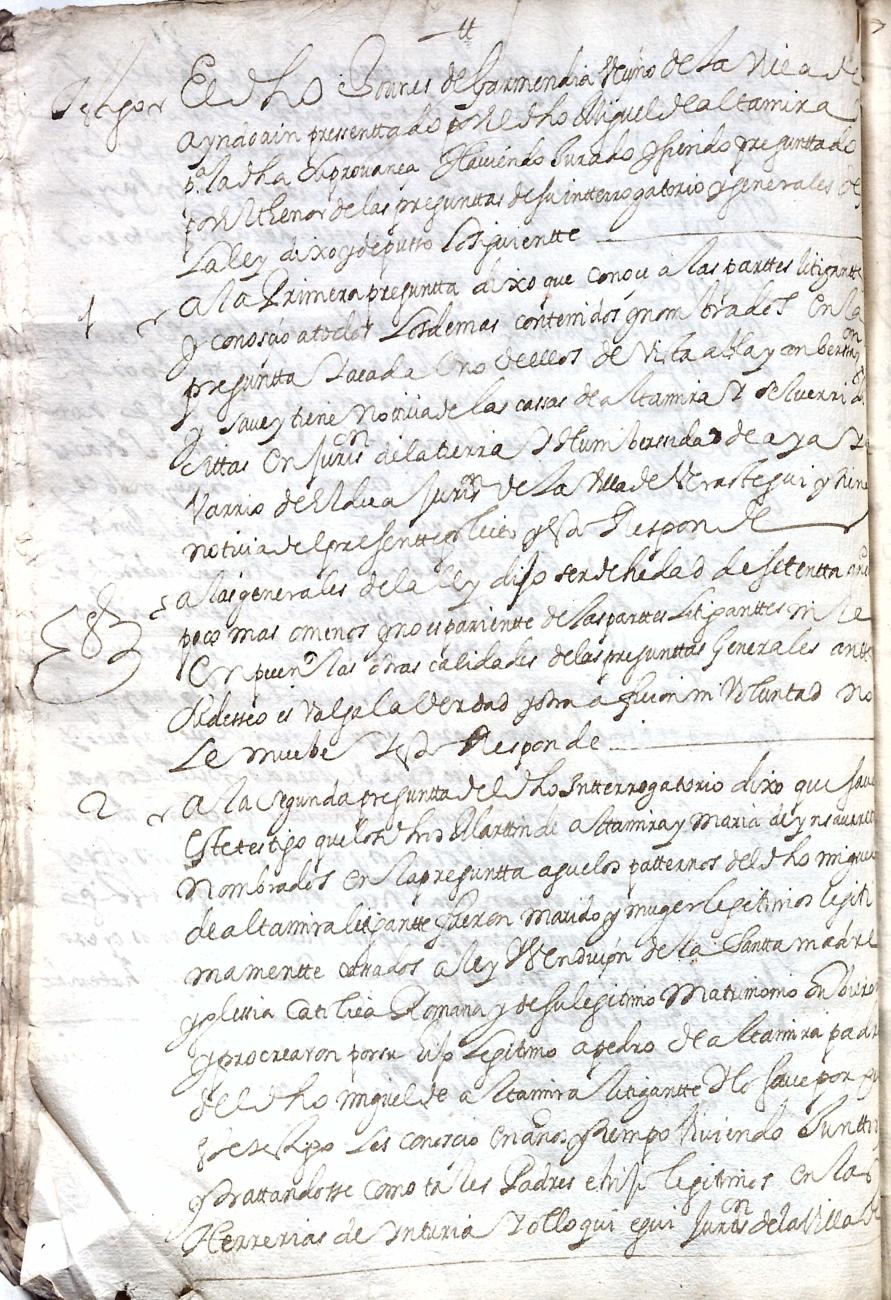 tt
Testigo El dho Joanes de Garmendia Veçino de la Villa de
ayndoain pressenttado por el dho Miguel de altamira
pa la dha su provança Haviendo Jurado y siendo preguntado
por el thenor de las preguntas de su intterrogatorio y generales de
La ley dixo y depusso Lo siguientte
1 a la Primera pregunta dixo que conoce a las parttes litigantte
y conoscio a todos Los demas contenidos y nombrados en la
pregunta y a cada Uno de ellos de Vista abla y conbersaon
y save y tiene notiçia de las cassas de altamira y
sittas en Jurison de la tierra y Humbersidad de aya y
Varrio de eldua Jurison de la Villa de Verastegui y tiene
notiçia del presentte pleito y esto Responde
a las generales de la ley dijo ser de hedad de setentta años
poco mas o menos y no es pariente de las parttes Litiganttes ni le
enpeen las otras calidades de las preguntas Generales antte
su desseo es Valga la Verdad y otra afiçion ni Voluntad no
Le muebe y esto Responde
2 a la segunda pregunta del dho Intterrogatorio dixo que save
este testigo que los dhos Marttin de altamira y Maria de ynsaurrati
Nombrados en la pregunta aguelos patternos del dho miguel
de altamira litigantte fueron marido y muger legitimos legiti
mamentte cassados a ley y Vendiçion de la Santta madre
yglessia Catolica Romana y de su legitimo Matrimonio Oubieron
y procrearon por su hijo Legitimo a pedro de altamira padre
del dho miguel de altamira litigantte y lo save por que
este testigo Les conoscio en años y tiempo Viviendo Junttos
y trattandosse como tales Padres e hijo legitimos en las
Herrerias de Inturia y olloqui egui Jurison de la Villa de